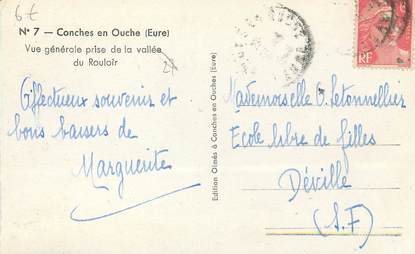 6 €
N° 7 — Conches en Ouche (Eure)
Vue générale prise de la vallée
du Rouloir
Affectueux souvenir et
bons baisers de
Marguerite
Edition Olmès à Conches en Ouches (Eure)
RF
Mademoiselle O. Letonnellier
Ecole libre de filles
Déville
(S.I)